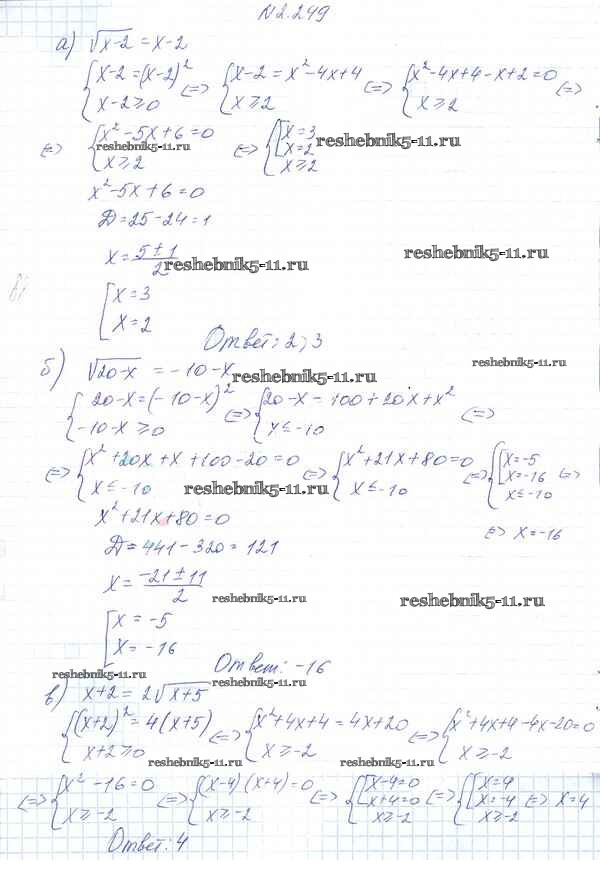 N 2.249
а) √x-2 = x-2
{ x-2=(x-2)² x-2≥0 <=> { x-2=x²-4x+4 x≥2 <=> { x²-4x+4-x+2=0 x≥2 <=>
<=> { x²-5x+6=0 x≥2 <=> { [ x=3 x=2 x≥2
reshebnik5-11.ru reshebnik5-11.ru
x²-5x+6=0
D=25-24=1
x= (5±1)/2
reshebnik5-11.ru reshebnik5-11.ru
[ x=3
x=2
Ответ: 2; 3
б) √20-x = -10-x
reshebnik5-11.ru reshebnik5-11.ru
{ 20-x=(-10-x)² -10-x≥0 <=> { 20-x=100+20x+x² x≤-10 <=>
<=> { x²+20x+x+100-20=0 x≤-10 <=> { x²+21x+80=0 x≤-10 <=> { [ x=-5 x=-16 x≤-10 <=>
reshebnik5-11.ru
<=> x=-16
x²+21x+80=0
D=441-320=121
x= (-21±11)/2
reshebnik5-11.ru reshebnik5-11.ru
[ x=-5
x=-16
Ответ: -16
reshebnik5-11.ru reshebnik5-11.ru
в) x+2=2√x+5
{ (x+2)²=4(x+5) x+2≥0 <=> { x²+4x+4=4x+20 x≥-2 <=> { x²+4x+4-4x-20=0 x≥-2
reshebnik5-11.ru reshebnik5-11.ru
<=> { x²-16=0 x≥-2 <=> { (x-4)(x+4)=0 x≥-2 <=> { [ x-4=0 x+4=0 x≥-2 <=> { [ x=4 x=-4 x≥-2 <=> x=4
Ответ: 4